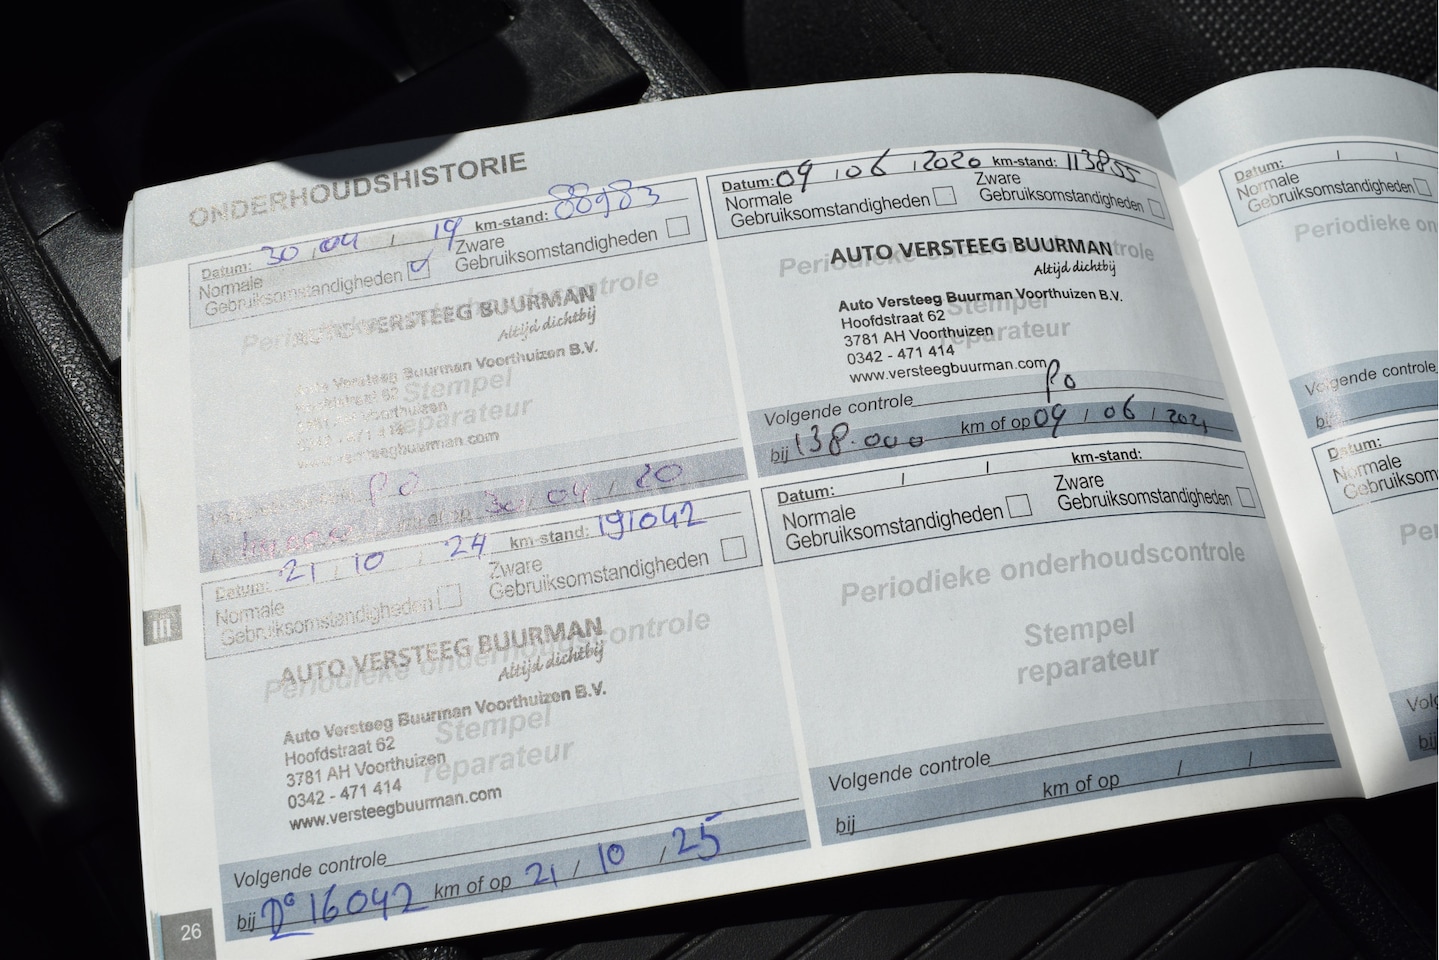 ONDERHOUDSHISTORIE
Datum: 30 / 04 / 19 km-stand: 88983
Normale Gebruiksomstandigheden
Zware Gebruiksomstandigheden
Periodieke onderhoudscontrole
AUTO VERSTEEG BUURMAN
Altijd dichtbij
Auto Versteeg Buurman Voorthuizen B.V.
Stempel
reparateur
0342 - 471 414
www.versteegbuurman.com
PO
30 / 04 / 20
Datum: 21 / 10 / 24 km-stand: 191042
Normale Gebruiksomstandigheden
Zware Gebruiksomstandigheden
Periodieke onderhoudscontrole
AUTO VERSTEEG BUURMAN
Altijd dichtbij
Auto Versteeg Buurman Voorthuizen B.V.
Hoofdstraat 62
3781 AH Voorthuizen
0342 - 471 414
www.versteegbuurman.com
Stempel
reparateur
Volgende controle
bij 216042 km of op 21 / 10 / 25
26
Datum: 09 / 06 / 2020 km-stand: 113855
Normale Gebruiksomstandigheden
Zware Gebruiksomstandigheden
Periodieke onderhoudscontrole
AUTO VERSTEEG BUURMAN
Altijd dichtbij
Auto Versteeg Buurman Voorthuizen B.V.
Hoofdstraat 62
3781 AH Voorthuizen
0342 - 471 414
www.versteegbuurman.com
Stempel
reparateur
Volgende controle PO
bij 138.000 km of op 09 / 06 / 2021
Datum: / / km-stand:
Normale Gebruiksomstandigheden
Zware Gebruiksomstandigheden
Periodieke onderhoudscontrole
Stempel
reparateur
Volgende controle
bij km of op / /
Datum: / /
Normale
Gebruiksomstandigheden
Periodieke
Volgende controle
bij
Datum:
Normale
bij